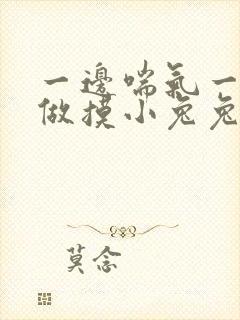 一邊喘氣一
做摸小兔兔
莫念